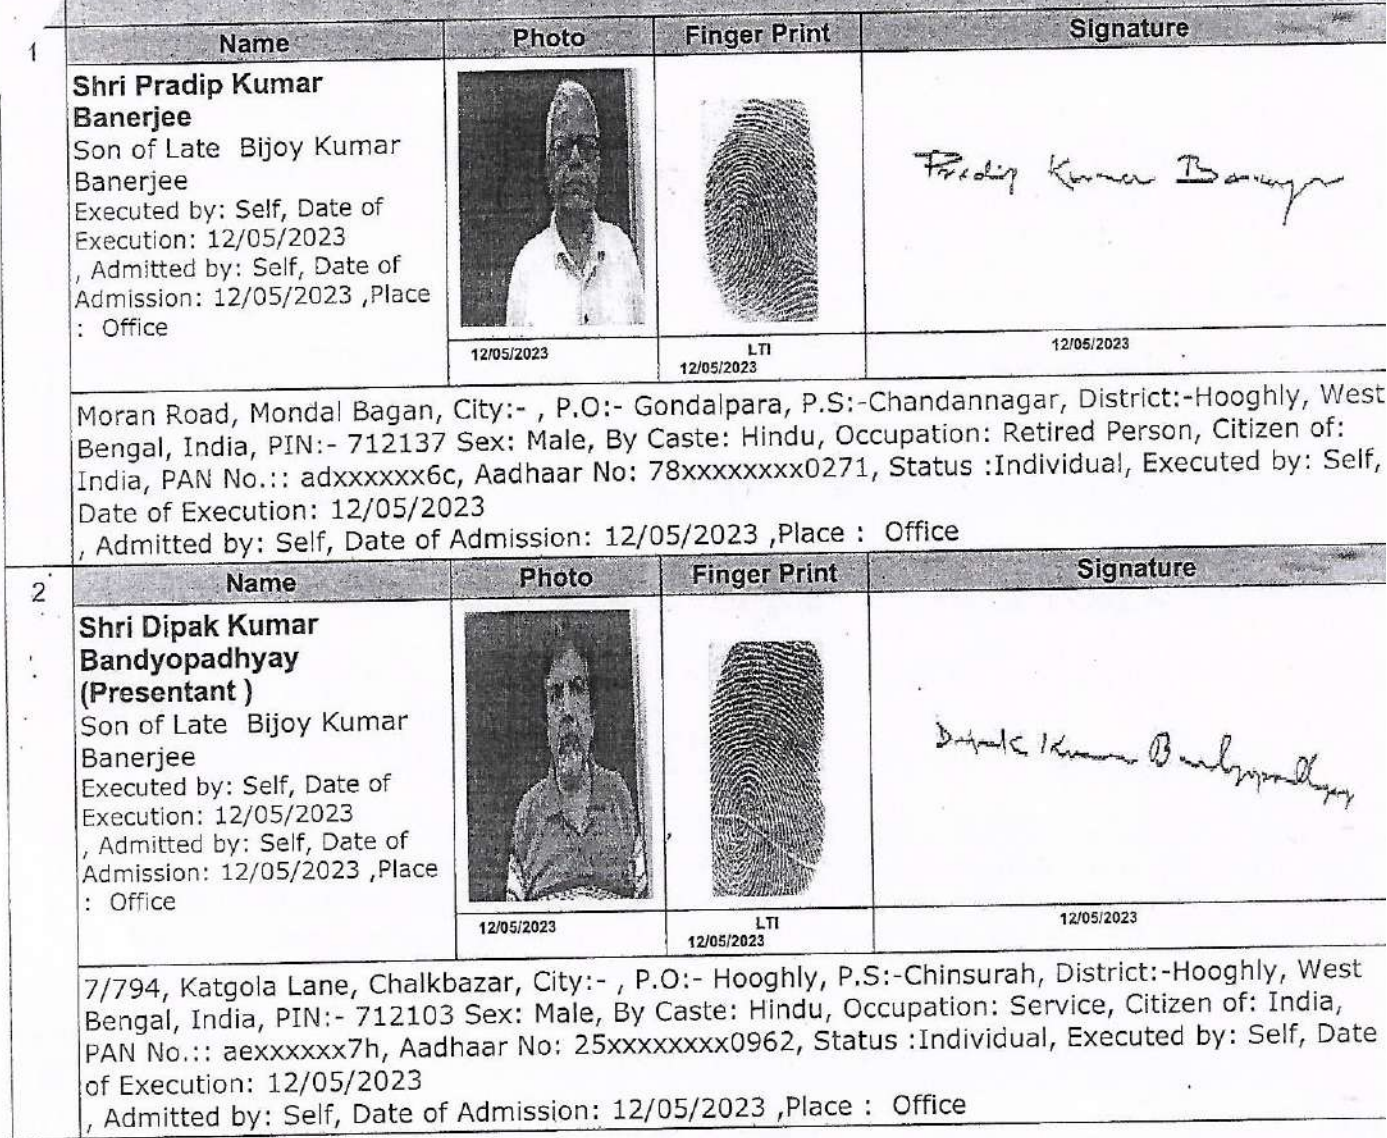 1
Name Photo Finger Print Signature
Shri Pradip Kumar
Banerjee
Son of Late Bijoy Kumar
Banerjee
Executed by: Self, Date of
Execution: 12/05/2023
, Admitted by: Self, Date of
Admission: 12/05/2023 ,Place
: Office
Pradip Kumar Banerjee
12/05/2023 LTI 12/05/2023
12/05/2023
Moran Road, Mondal Bagan, City:- , P.O:- Gondalpara, P.S:-Chandannagar, District:-Hooghly, West
Bengal, India, PIN:- 712137 Sex: Male, By Caste: Hindu, Occupation: Retired Person, Citizen of:
India, PAN No.:: adxxxxxx6c, Aadhaar No: 78xxxxxxxx0271, Status :Individual, Executed by: Self,
Date of Execution: 12/05/2023
, Admitted by: Self, Date of Admission: 12/05/2023 ,Place : Office
2
Name Photo Finger Print Signature
Shri Dipak Kumar
Bandyopadhyay
(Presentant )
Son of Late Bijoy Kumar
Banerjee
Executed by: Self, Date of
Execution: 12/05/2023
, Admitted by: Self, Date of
Admission: 12/05/2023 ,Place
: Office
Dipak Kumar Bandyopadhyay
12/05/2023 LTI 12/05/2023
12/05/2023
7/794, Katgola Lane, Chalkbazar, City:- , P.O:- Hooghly, P.S:-Chinsurah, District:-Hooghly, West
Bengal, India, PIN:- 712103 Sex: Male, By Caste: Hindu, Occupation: Service, Citizen of: India,
PAN No.:: aexxxxxx7h, Aadhaar No: 25xxxxxxxx0962, Status :Individual, Executed by: Self, Date
of Execution: 12/05/2023
, Admitted by: Self, Date of Admission: 12/05/2023 ,Place : Office